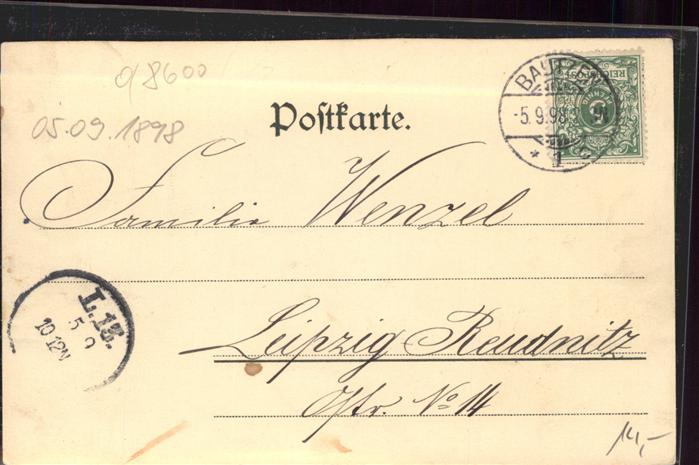 o/8600
05.09.1898
Postkarte.
BAUTZEN
-5.9.98
* 1
REICHSPOST
Familie Wenzel
L.13.
5 9
10-12N
Leipzig Reudnitz
No 14
14,-